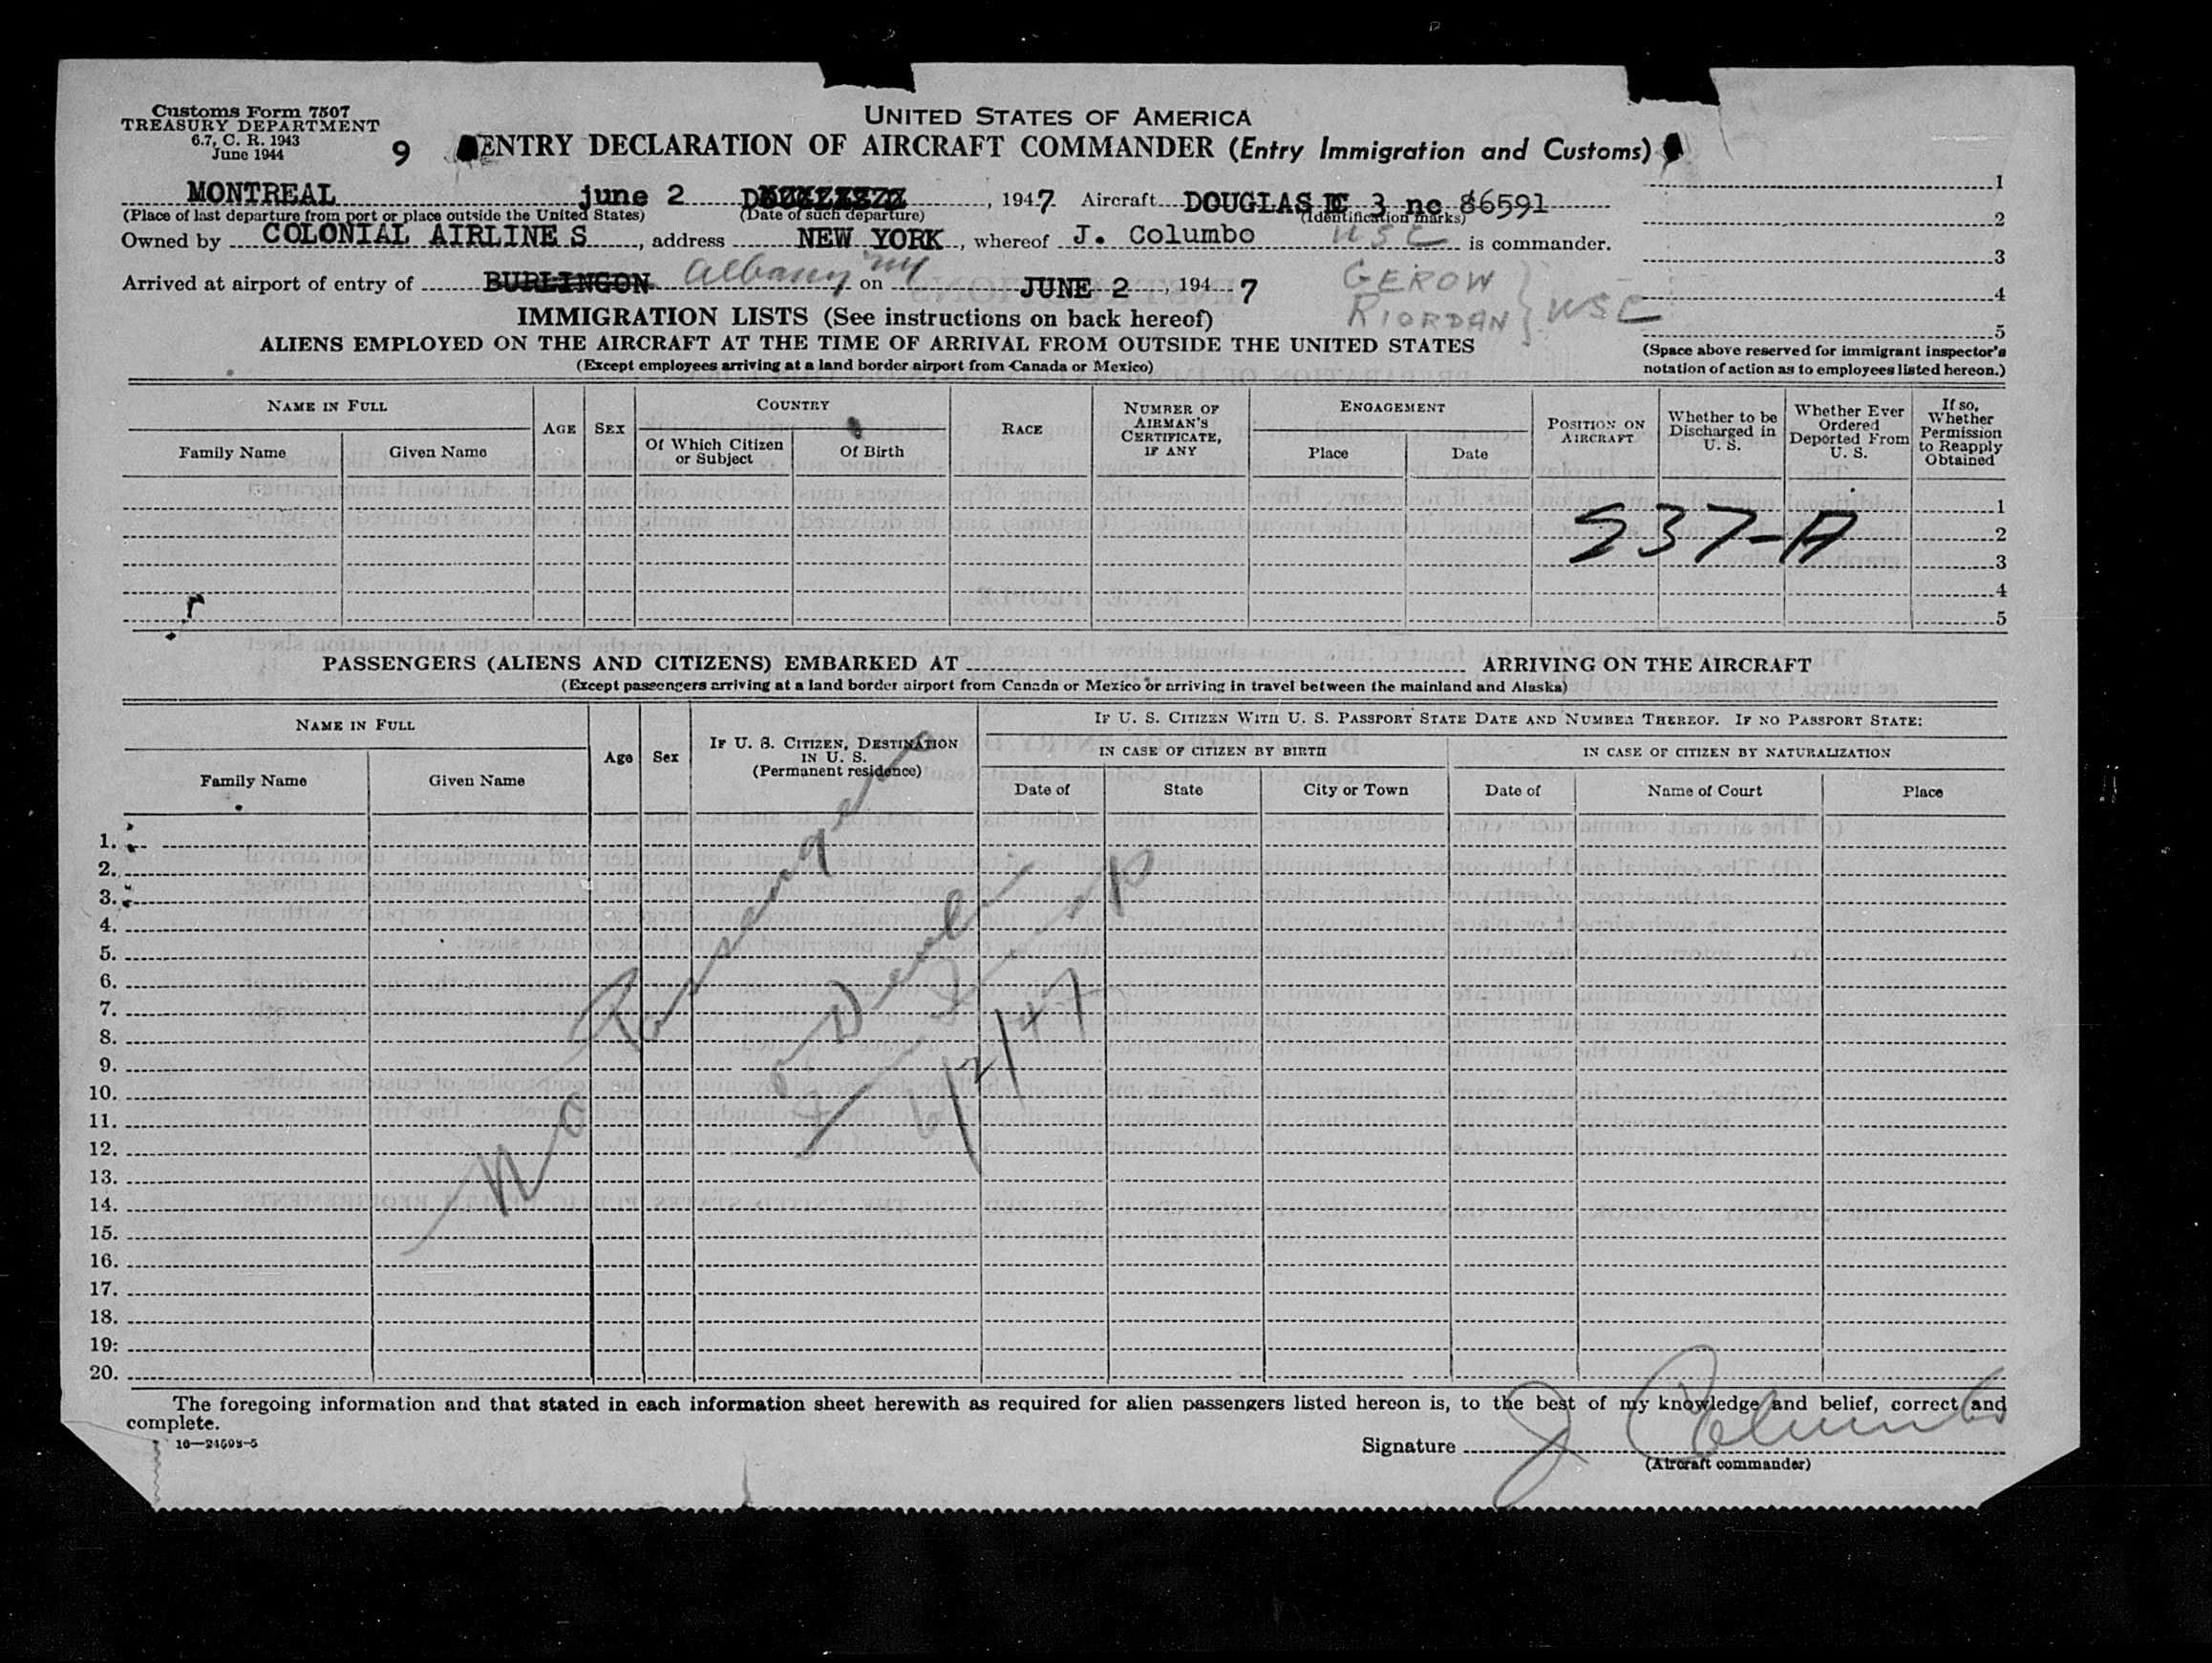 Customs Form 7507
TREASURY DEPARTMENT
6.7, C. R. 1943
June 1944
9
UNITED STATES OF AMERICA
ENTRY DECLARATION OF AIRCRAFT COMMANDER (Entry Immigration and Customs)
MONTREAL june 2 , 1947 Aircraft DOUGLAS DC 3 nc 86591
(Place of last departure from port or place outside the United States) (Date of such departure) (Identification marks)
Owned by COLONIAL AIRLINES, address NEW YORK, whereof J. Columbo USC is commander.
Arrived at airport of entry of BURLINGON Albany NY on JUNE 2, 1947
GEROW
RIORDAN } USC
1
2
3
4
5
(Space above reserved for immigrant inspector's
notation of action as to employees listed hereon.)
IMMIGRATION LISTS (See instructions on back hereof)
ALIENS EMPLOYED ON THE AIRCRAFT AT THE TIME OF ARRIVAL FROM OUTSIDE THE UNITED STATES
(Except employees arriving at a land border airport from Canada or Mexico)
NAME IN FULL
Family Name
Given Name
AGE
SEX
COUNTRY
Of Which Citizen
or Subject
Of Birth
RACE
NUMBER OF
AIRMAN'S
CERTIFICATE,
IF ANY
ENGAGEMENT
Place
Date
POSITION ON
AIRCRAFT
Whether to be
Discharged in
U. S.
Whether Ever
Ordered
Deported From
U. S.
If so,
Whether
Permission
to Reapply
Obtained
1
2
3
4
5
537-A
PASSENGERS (ALIENS AND CITIZENS) EMBARKED AT ARRIVING ON THE AIRCRAFT
(Except passengers arriving at a land border airport from Canada or Mexico or arriving in travel between the mainland and Alaska)
NAME IN FULL
Family Name
Given Name
Age
Sex
IF U. S. CITIZEN, DESTINATION
IN U. S.
(Permanent residence)
IF U. S. CITIZEN WITH U. S. PASSPORT STATE DATE AND NUMBER THEREOF. IF NO PASSPORT STATE:
IN CASE OF CITIZEN BY BIRTH
Date of
State
City or Town
IN CASE OF CITIZEN BY NATURALIZATION
Date of
Name of Court
Place
1.
2.
3.
4.
5.
6.
7.
8.
9.
10.
11.
12.
13.
14.
15.
16.
17.
18.
19.
20.
No Passengers
6/2/47
The foregoing information and that stated in each information sheet herewith as required for alien passengers listed hereon is, to the best of my knowledge and belief, correct and
complete.
16—24598-5
Signature J Columbo
(Aircraft commander)